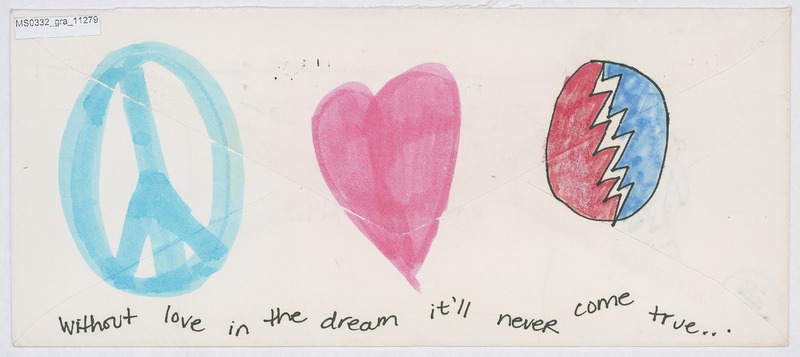 MS0332_gra_11279
without love in the dream it'll never come true...